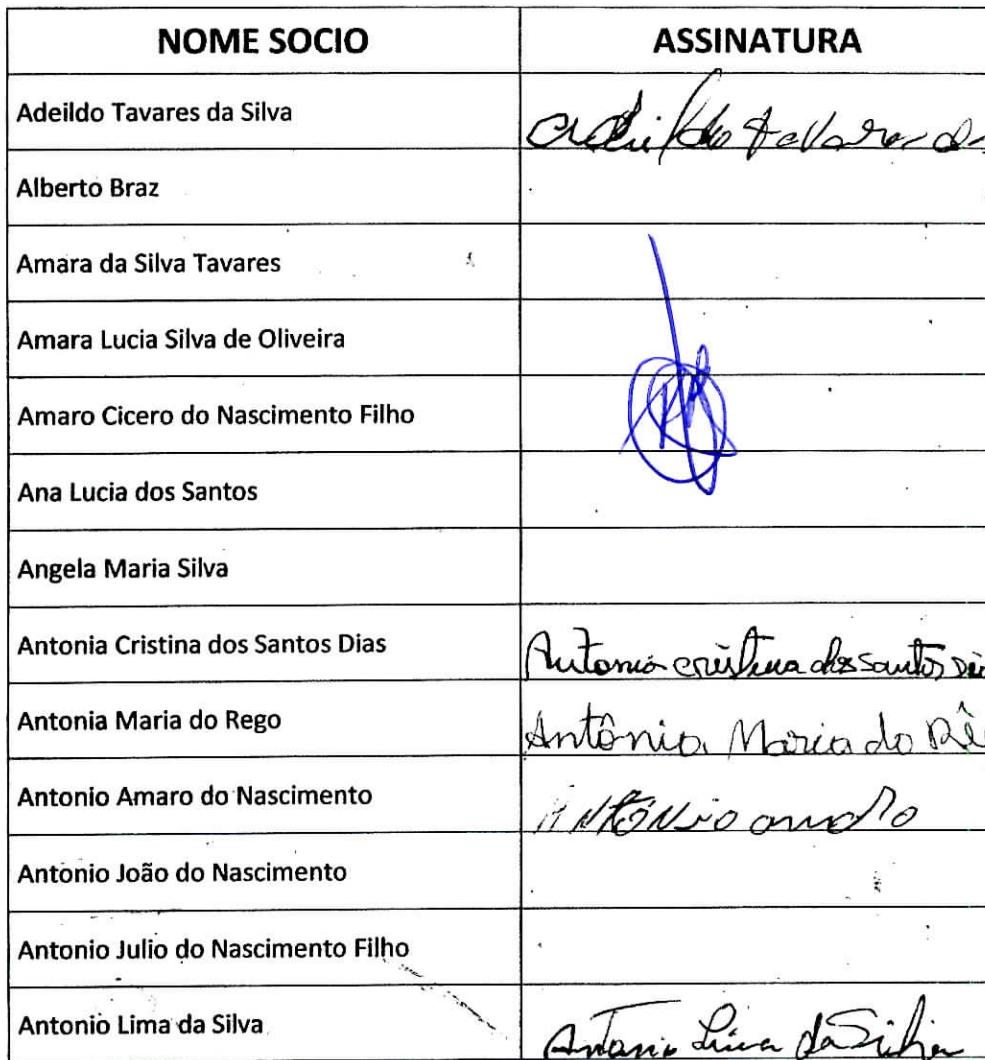 NOME SOCIO ASSINATURA
Adeildo Tavares da Silva
Alberto Braz
Amara da Silva Tavares
Amara Lucia Silva de Oliveira
Amaro Cicero do Nascimento Filho
Ana Lucia dos Santos
Angela Maria Silva
Antonia Cristina dos Santos Dias Antonia cristina dos santos
Antonia Maria do Rego Antônia Maria do
Antonio Amaro do Nascimento ANTÔNio amaro
Antonio João do Nascimento
Antonio Julio do Nascimento Filho
Antonio Lima da Silva Antonio Lima da Silva